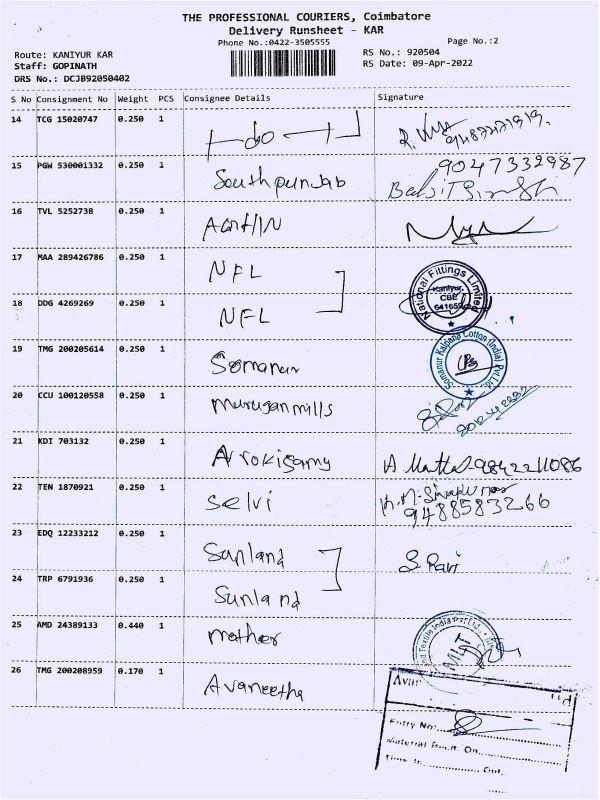 THE PROFESSIONAL COURIERS, Coimbatore
Delivery Runsheet - KAR
Phone No.:0422-3505555
Page No.:2
Route: KANIYUR KAR
RS No.: 920504
Staff: GOPINATH
RS Date: 09-Apr-2022
DRS No.: DCJB92050402
S No Consignment No Weight PCS Consignee Details Signature
14 TCG 15020747 0.250 1
15 PGW 530001332 0.250 1 Southpunjab 9047332987
16 TVL 5252738 0.250 1
17 MAA 289426786 0.250 1 NFL
National Fittings Limited
Kaniyur,
CBE
641659
18 DDG 4269269 0.250 1 NFL
19 TMG 200205614 0.250 1 Somanur
Somanur Kalpana Cotton (India) Pvt Ltd.
20 CCU 100120558 0.250 1 muruganmills
21 KDI 703132 0.250 1 Arokisamy 9842211086
22 TEN 1870921 0.250 1 selvi
9488583266
23 EDQ 12233212 0.250 1 Sunland S. Ravi
24 TRP 6791936 0.250 1 Sunland
25 AMD 24389133 0.440 1 mother
26 TMG 200208959 0.170 1 Avaneetha
Entry No:
Time In